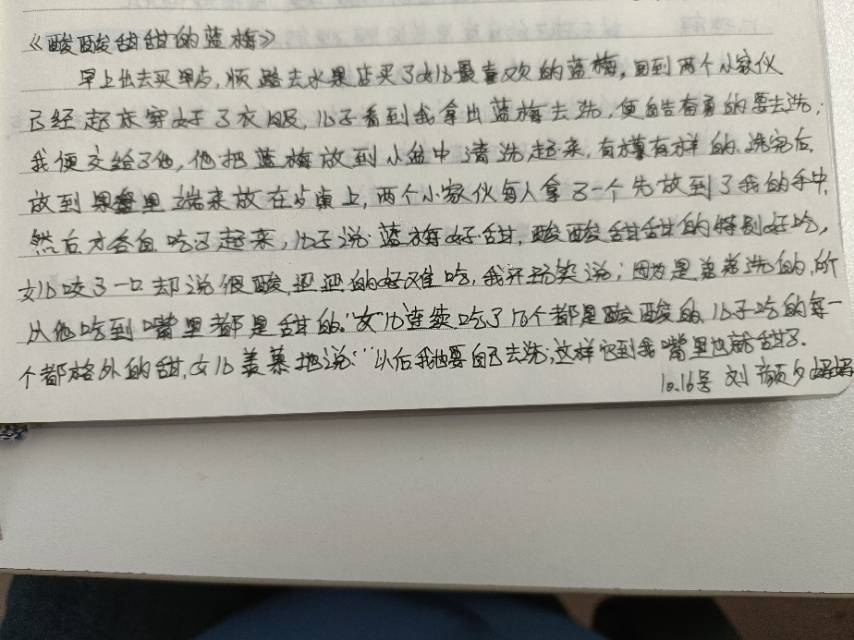 《酸酸甜甜的蓝梅》
早上出去买早点，顺路去水果店买了女儿最喜欢的蓝梅，回到两个小家伙
已经起床穿好了衣服，儿子看到我拿出蓝梅去洗，便自告奋勇的要去洗；
我便交给了他，他把蓝梅放到小盆中清洗起来，有模有样的，洗完后，
放到果盘里端来放在桌上，两个小家伙每人拿了一个先放到了我的手中，
然后才各自吃了起来，儿子说：蓝梅好甜，酸酸甜甜的特别好吃，
女儿咬了一口却说很酸，的好难吃，我开玩笑说：因为是哥哥洗的，所
以他吃到嘴里都是甜的。"女儿连续吃了几个都是酸酸的，儿子吃的每一
个都格外的甜，女儿羡慕地说："以后我也要自己去洗，这样吃到我嘴里也就甜了.
10.16号 刘颜夕妈妈